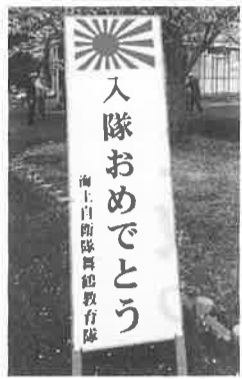 入隊おめでとう
海上自衛隊舞鶴教育隊